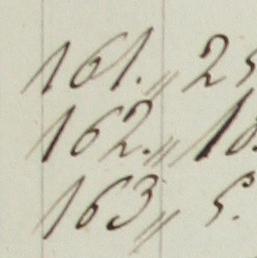 161. „ 25
162. „ 18.
163 „ 5.